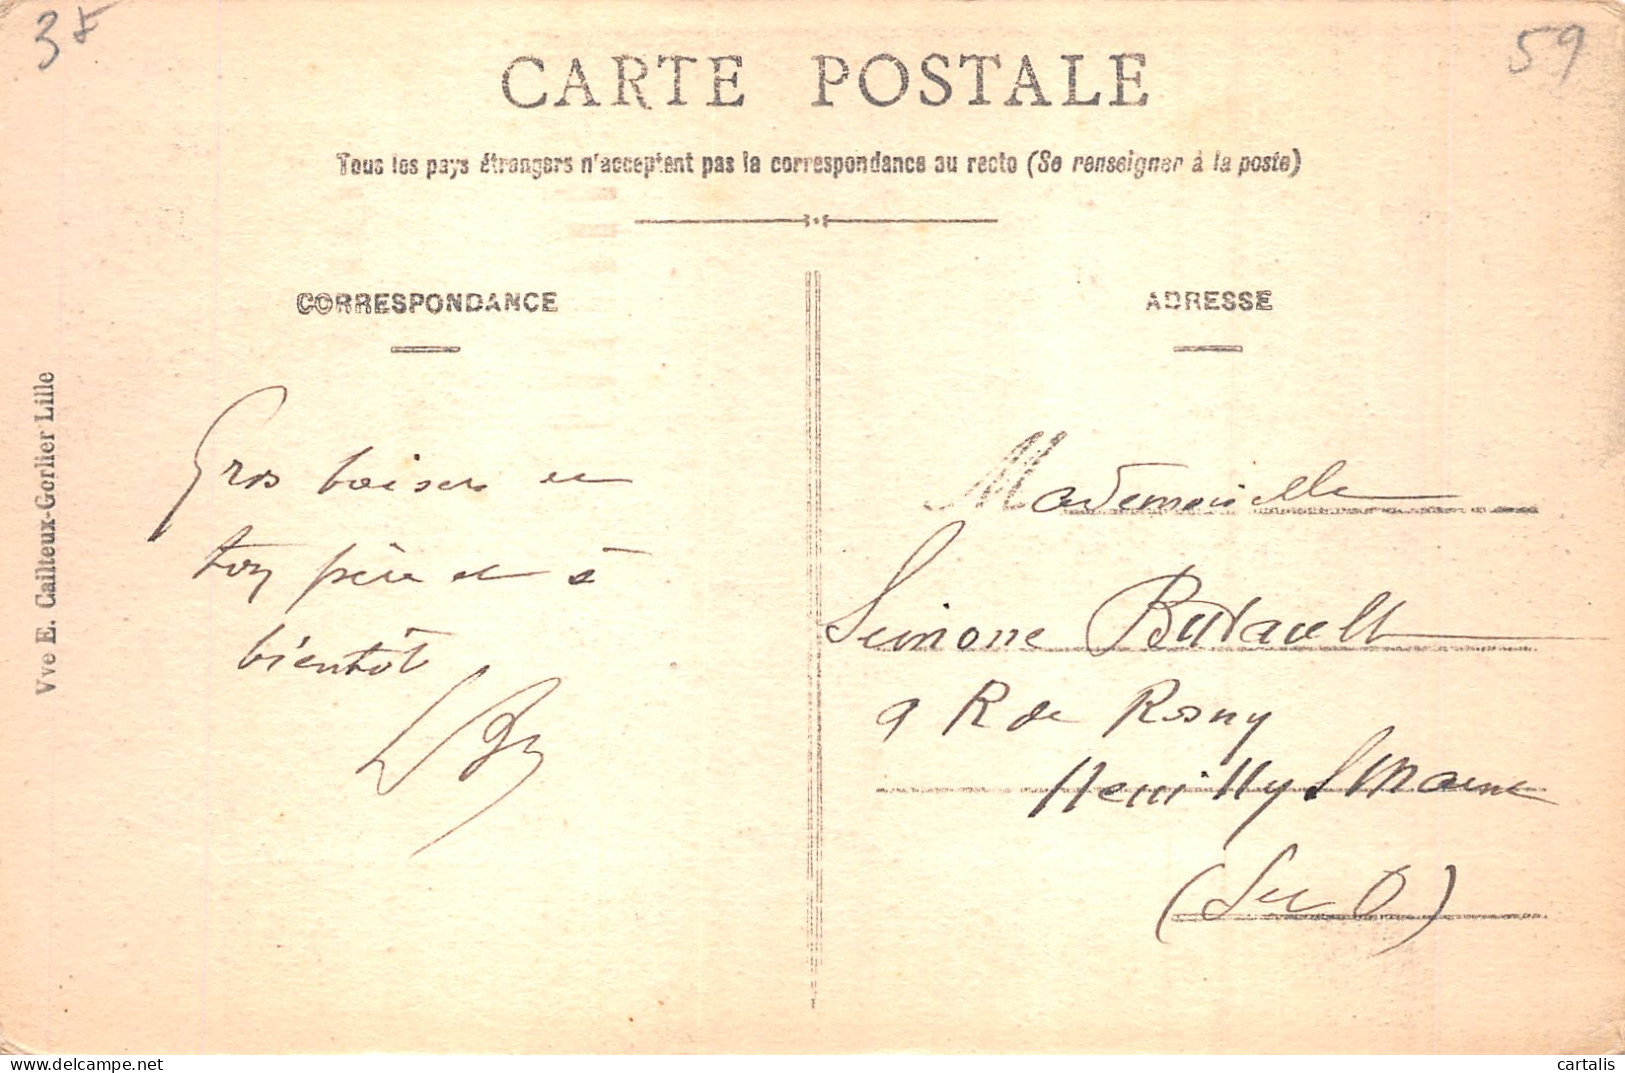 59
CARTE POSTALE
Tous les pays étrangers n'acceptent pas la correspondance au recto (Se renseigner à la poste)
CORRESPONDANCE
ADRESSE
Vve E. Cailteux-Gorlier Lille
Gros baisers de
ton père et à
bientôt
Mademoiselle
Simone
9 R de Rosny
Neuilly S Marne
(S et O)
cartalis